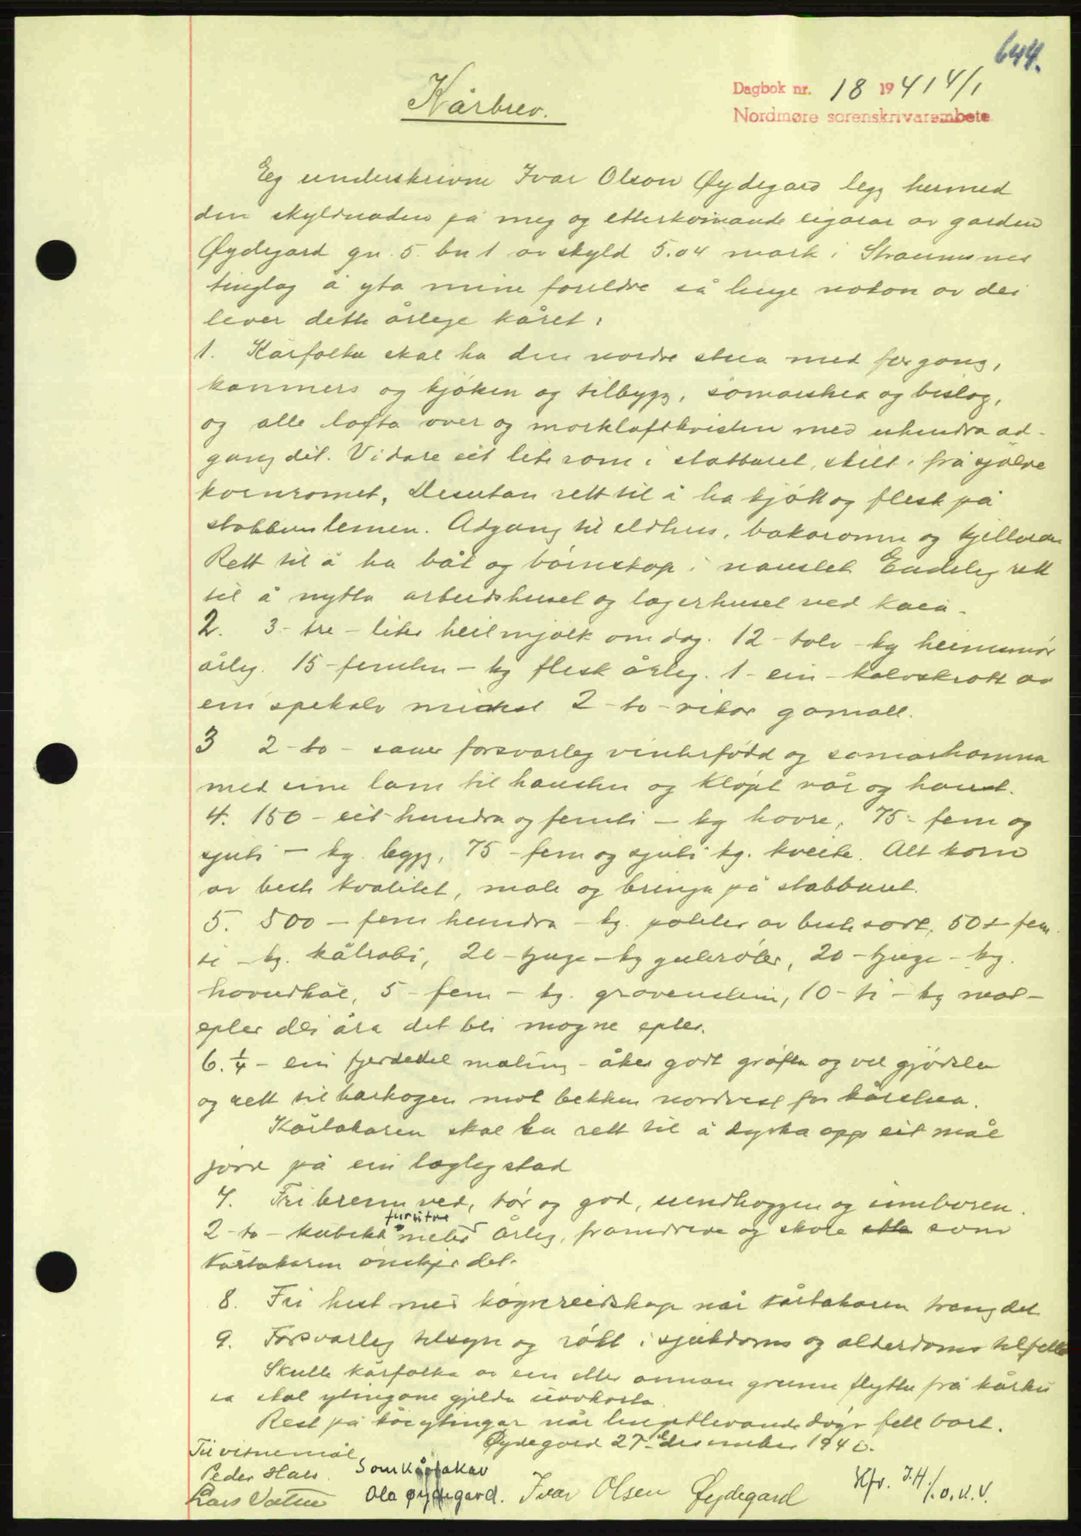 644.
Dagbok nr. 18 1941 4/1
Nordmøre sorenskrivarembete
Kårbrev.
Eg underskrivne Ivar Olson Øydegard legg hermed
den skyldnaden på meg og etterkomande eigarar av garden
Øydegard gn. 5 bn 1 av skyld 5.04 mark i Straumsnes
tinglag å yta mine foreldre så lenge nokon av dei
lever dette årlege kåret:
1. Kårfolka skal ha den nordre stua med forgang,
kammers og kjøken og tilbygg, somarstua og bislag,
og alle lofta over og morkloftkvisten med uhindra ad-
gang dit. Vidare eit lite rom i stabburet, skilt frå sjølve
kornromet, Desutan rett til å ha kjøtt og flesk på
stabburslemen. Adgang til eldhus, bakaromn og kjellaren
Rett til å ha båt og på naustet Endeleg rett
til å nytta arbeidshuset og lagerhuset ved kaia.
2. 3 - tre - liter heilmjølk om dag. 12 - tolv - kg heimesmør
årleg. 15 - femten - kg flesk årleg. 1 - ein - kalvskrott av
ein spekalv minst 2 - to - vikor gamall.
3 2 - to - sauer forsvarleg vinterfødd og somarhamna
med sine lam til hausten og kløpt vår og haust.
4. 150 - eit hundra og femti - kg havre, 75 - fem og
sytti - kg. bygg, 75 - fem og sytti kg. kveite. Alt korn
av beste kvalitet, male og bringa på stabburet.
5. 500 - fem hundra - kg. poteter av beste sort, 50 - fem
ti - kg. kålrabi, 20 - tjuge - kg gulrøter, 20 - tjuge - kg.
hovudkål, 5 - fem - kg. gravenstein, 10 - ti - kg mat-
epler dei åra det bli mogne epler.
6. 1/4 - ein fjerdedel maling - åker godt grøfta og vel gjødsla
og rett til harhagen mot bekken nordvest for kårstua.
Kårtakaren skal ha rett til å dyrka opp eit mål
jord på ein lagleg stad
7. Fri brenn ved, tør og god, sundhoggen og innboren.
2 - to - kubikk meter furutre årleg, framdreve og skore som
Kårtakaren ønskjer det.
8. Fri hest med køyrereidskap når kårtakaren treng det
9. Forsvarleg tilsyn og røkt i sjukdoms og alderdoms tilfelle
Skulle kårfolka av ein eller annan grunn flytta frå kåret
så skal ytingane gjelda uavkorta.
Rest på kårytingar når lengstlevande døyr fell bort.
Øydegard 27de desember 1940.
Til vitnemål
Peder Hals.
Lars Vatne
Som kårtakar
Ola Øydegard.
Ivar Olsen Øydegard
Kfr. J.H./.O.V.V.